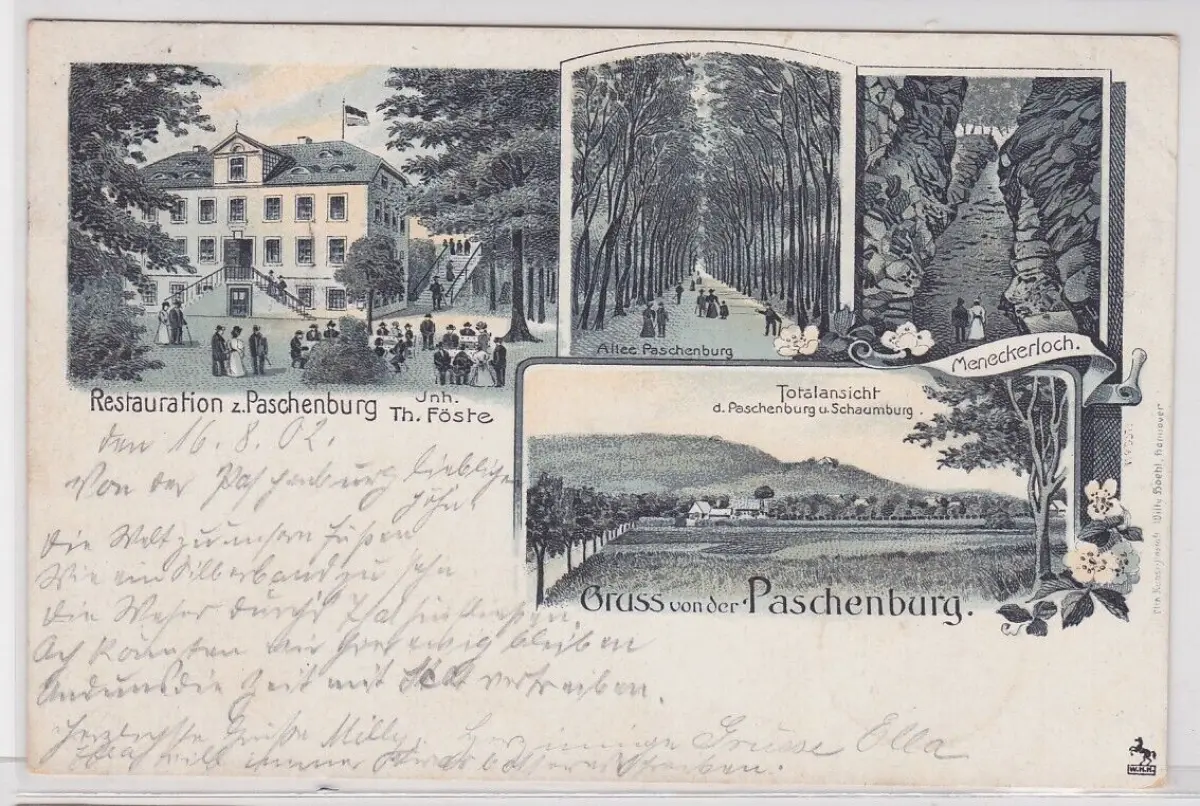 Restauration z. Paschenburg
Jnh.
Th. Föste
Allee Paschenburg
Meneckerloch.
Totalansicht
d. Paschenburg u. Schaumburg.
Gruss von der Paschenburg.
den 16. 8. 02.
Von der Paschenburg lieblichen
Höhn
Die Welt zu unsern Füßen
Wie ein Silberband zu sehn
Die Weser durch's Thal
Ach könnten wir hier ewig bleiben
Und uns die Zeit mit vertreiben.
Herzlichste Grüße Milly. Herzinnige Grüsse Ella
will immer
Hannover
W.H.H.